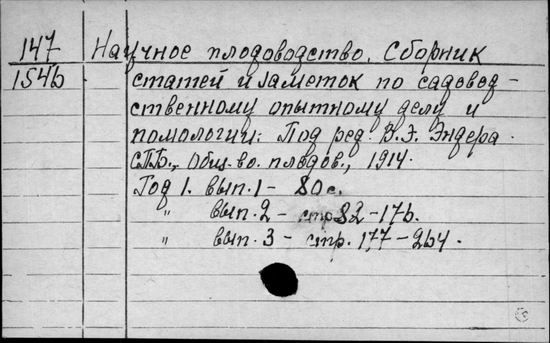 147 Научное плодоводство. Сборник
154б статей и заметок по садовод-
ственному опытному делу и
помологии. Под ред. В.Э. Эндера.
С.П.Б., Общ-во. плодов., 1914.
Год 1. вып. 1 - 80 с.
" вып. 2 - стр 82-176.
" вып. 3 - стр. 177-264.